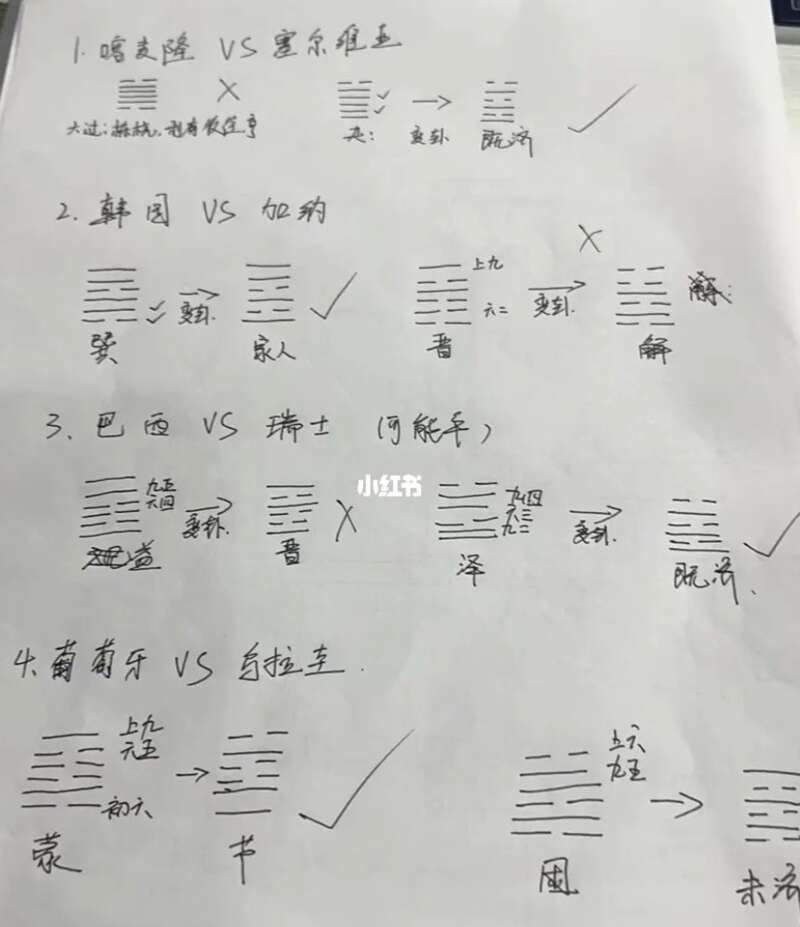 1. 喀麦隆 VS 塞尔维亚
大过: 栋桡,利有攸往亨
夬: 变卦 既济
2. 韩国 VS 加纳
上九
六二
变卦. 变卦.
巽 家人 晋 解
3. 巴西 VS 瑞士 (可能平)
九五 九四
六四 六三
九二
小红书
变卦. 变卦.
益 晋 泽 既济.
4. 葡萄牙 VS 乌拉圭.
上九
六五
初六
五六
九五
蒙 节 困 未济